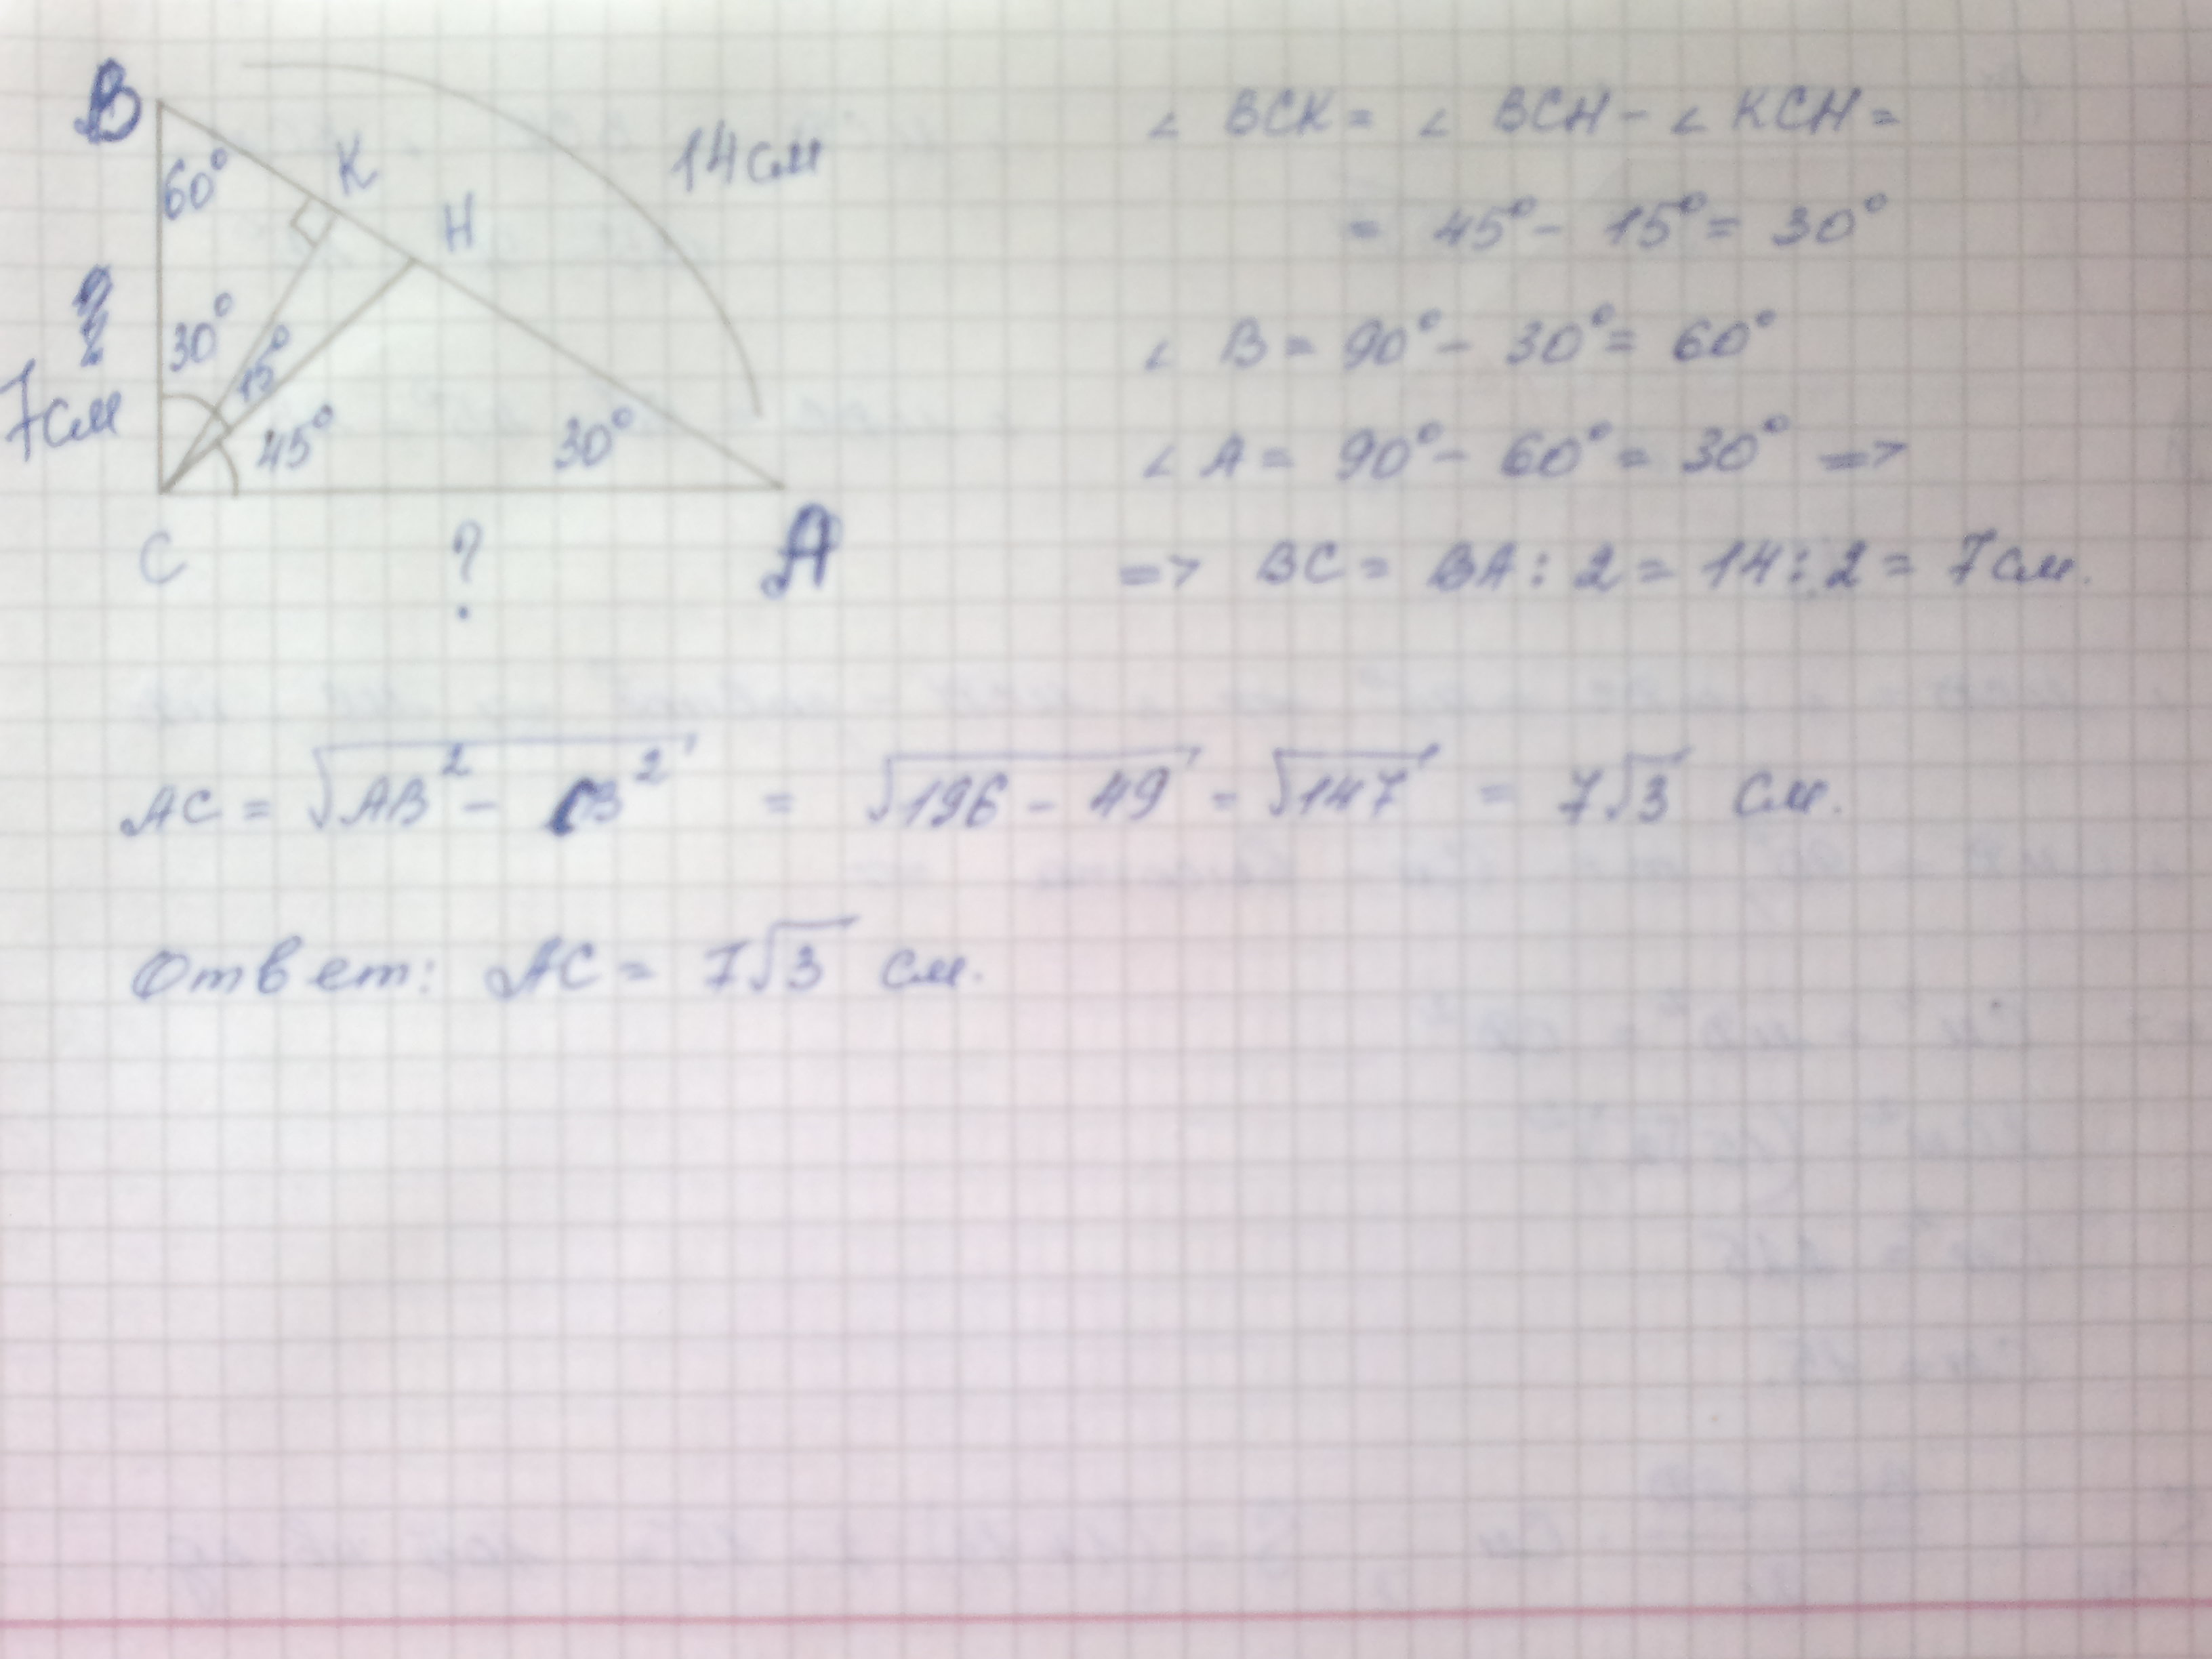 B
60°
K
H
14 см
30°
15°
7 см
45°
30°
C
?
A
∠ BCK = ∠ BCH - ∠ KCH =
= 45° - 15° = 30°
∠ B = 90° - 30° = 60°
∠ A = 90° - 60° = 30° =>
=> BC = BA : 2 = 14 : 2 = 7 см.
AC = √AB² - CB² = √196 - 49 = √147 = 7√3 см.
Ответ: AC = 7√3 см.